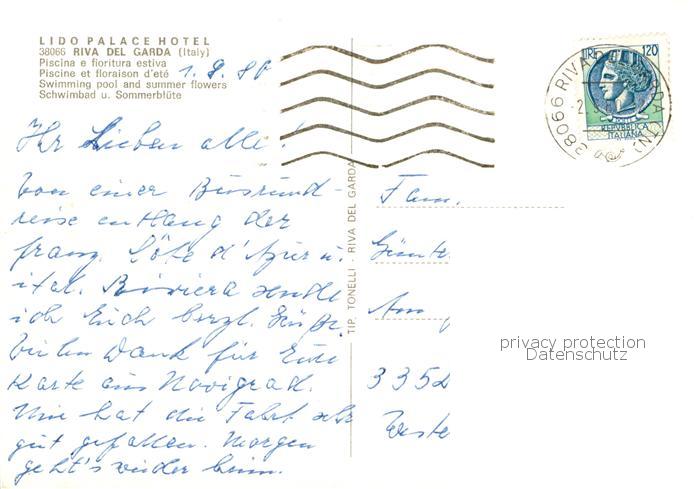 LIDO PALACE HOTEL
38066 RIVA DEL GARDA (Italy)
Piscina e fioritura estiva
Piscine et floraison d'eté
Swimming pool and summer flowers
Schwimbad u. Sommerblüte
1.9.80
Ihr Lieben alle!
Von einer Busrund-
reise entlang der
franz. Côte d'Azur u.
ital. Riviera sende
ich Euch herzl. Grüße.
Vielen Dank für Eure
Karte aus Novigrad.
Mir hat die Fahrt sehr
gut gefallen. Morgen
geht's wieder heim.
TIP. TONELLI - RIVA DEL GARDA
LIRE 120
REPUBBLICA
ITALIANA
38066 RIVA DEL GARDA (TN)
Fam.
Günte
Am
3352
privacy protection
Datenschutz